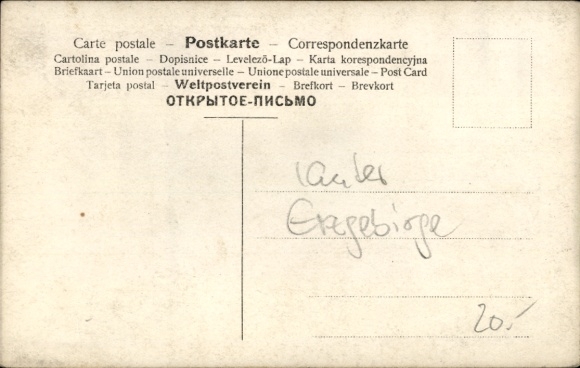 Carte postale – Postkarte – Correspondenzkarte
Cartolina postale – Dopisnice – Levelező-Lap – Karta korespondencyjna
Briefkaart – Union postale universelle – Unione postale universale – Post Card
Tarjeta postal – Weltpostverein – Brefkort – Brevkort
ОТКРЫТОЕ-ПИСЬМО
Erzgebirge
20.-